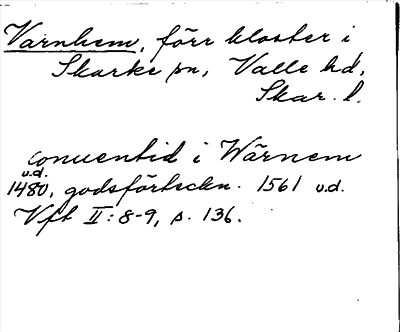 Varnhem, förr kloster i
Skarke sn, Valle hd,
Skar. l.
conuentid i Wärnem
u.d.
1480, godsförteckn. 1561 u.d.
Vft II:8-9, s. 136.